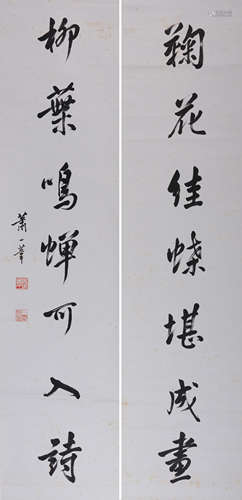 鞠花佳蝶堪成畫
柳葉鳴蟬可入詩
蕭一葦